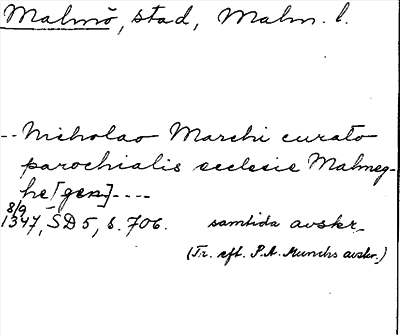 Malmö, stad, Malm. l.
-- Nicholao Marchi curato
parochialis ecclesie Malmeg-
he [gen] ----
8/9
1347, SD 5, s. 706. samtida avskr.
(Tr. eft. P.A. Munchs avskr.)